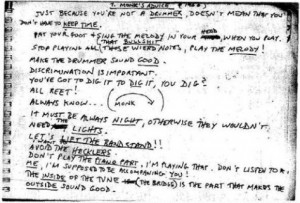 T. MONK'S ADVICE (1960)
JUST BECAUSE YOU'RE NOT A DRUMMER, DOESN'T MEAN THAT YOU
DON'T HAVE TO KEEP TIME.
PAT YOUR FOOT & SING THE MELODY IN YOUR HEAD, WHEN YOU PLAY.
STOP PLAYING ALL THAT BULLSHIT, THOSE WEIRD NOTES, PLAY THE MELODY!
MAKE THE DRUMMER SOUND GOOD.
DISCRIMINATION IS IMPORTANT.
YOU'VE GOT TO DIG IT TO DIG IT, YOU DIG?
ALL REET!
ALWAYS KNOW... MONK
IT MUST BE ALWAYS NIGHT, OTHERWISE THEY WOULDN'T
NEED THE LIGHTS.
LET'S LIFT THE BAND STAND!!
AVOID THE HECKLERS.
DON'T PLAY THE PIANO PART, I'M PLAYING THAT. DON'T LISTEN TO
ME, I'M SUPPOSED TO BE ACCOMPANYING YOU!
THE INSIDE OF THE TUNE (THE BRIDGE) IS THE PART THAT MAKES THE
OUTSIDE SOUND GOOD.